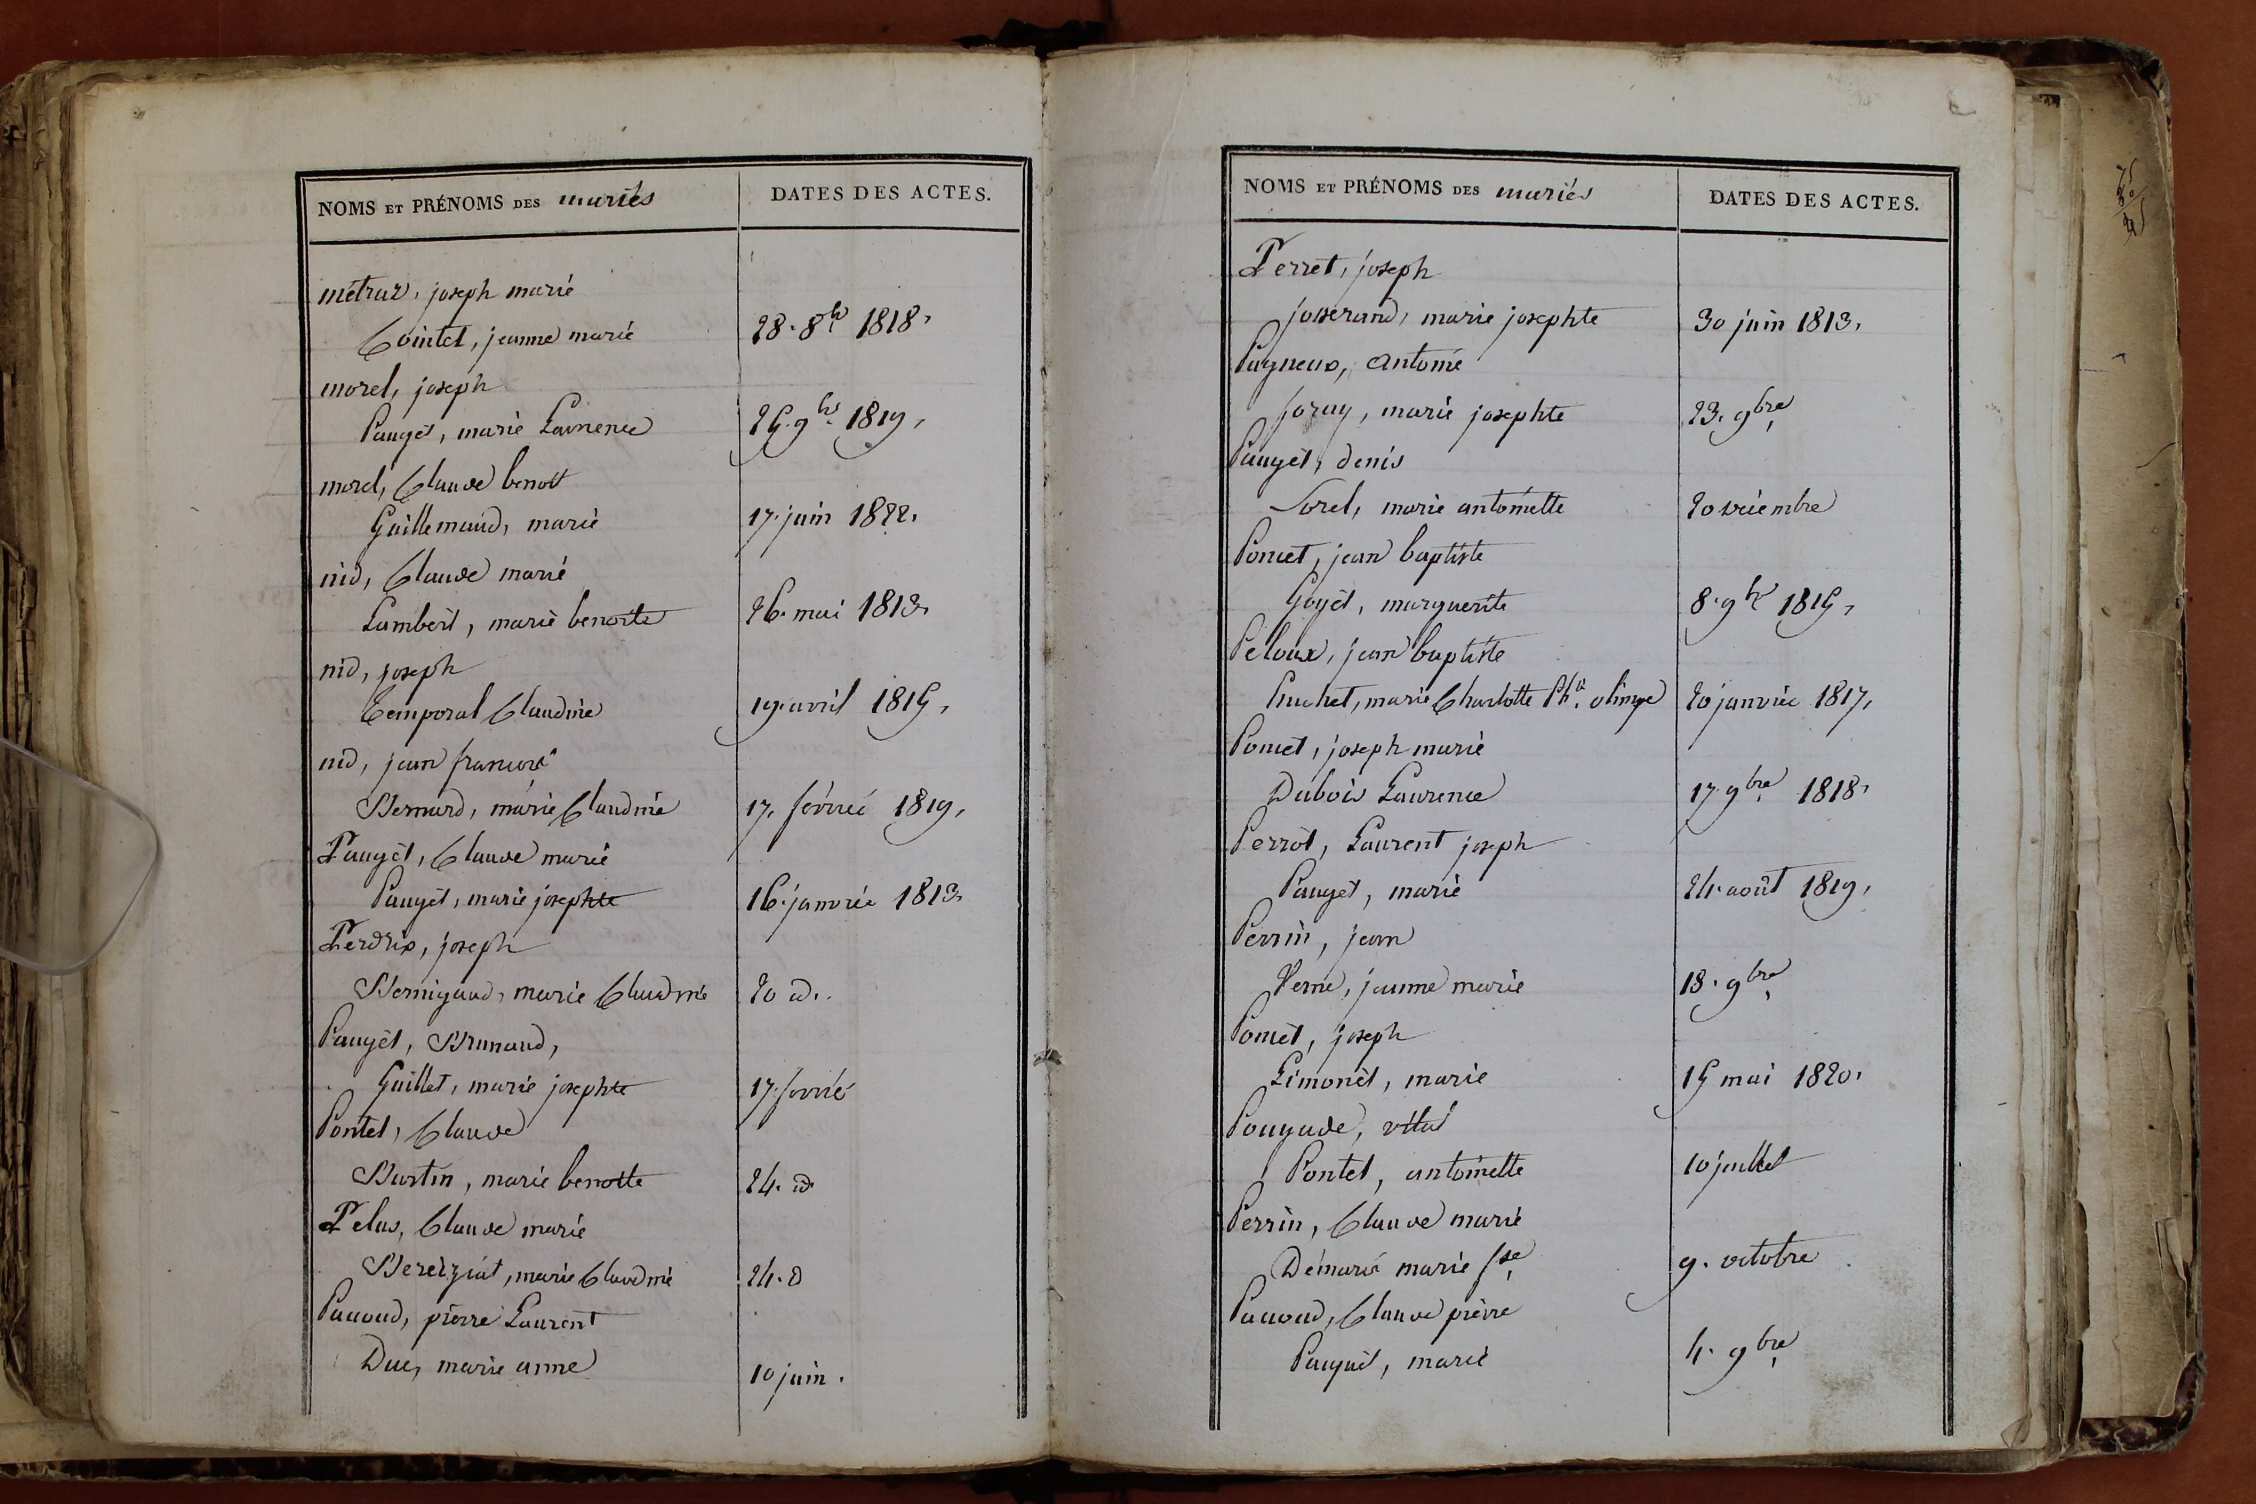 NOMS ET PRÉNOMS DES mariés DATES DES ACTES.
métraz, joseph marié
Cointet, jeanne marie 28. 8bre 1818.
morel, joseph
Pauget, marie Laurence 25. 9bre 1819.
morel, Claude benoit
Guillemaud, marie 17. juin 1822.
nid, Claude marie
Lambert, marie benoite 26. mai 1813.
nid, joseph
Temporal Claudine 19. avril 1815.
nid, jean francois
Bernard, marie Claudine 17. février 1819.
Pauget, Claude marie
Pauget, marie josephte 16. janvier 1813.
Perdrix, joseph
Bernigaud, marie Claudine 20 id.
Pauget, Brunaud,
Guillet, marie josephte 17. février
Pontet, Claude
Burtin, marie benoite 24. id
Pelus, Claude marie
Bereiziat, marie Claudine 24. d
Pacoud, pierre Laurent
Duc, marie anne 10 juin.
NOMS ET PRÉNOMS DES mariés DATES DES ACTES.
Perret, joseph
josserand, marie josephte 30 juin 1813.
Pugneux, antoine
joray, marie josephte 23. 9bre
Pauget, denis
Sorel, marie antoinette 20 décembre
Poncet, jean baptiste
Goyet, marguerite 8. 9bre 1815.
Peloux, jean baptiste
marie Charlotte olimpe 20 janvier 1817.
Poncet, joseph marie
Dubois Laurence 17. 9bre 1818.
Perrot, Laurent joseph
Pauget, marie 24. août 1819.
Perrin, jean
Verne, jeanne marie 18. 9bre
Poncet, joseph
Limonet, marie 15 mai 1820.
Pougade, vital
Pontet, antoinette 10 juillet
Perrin, Claude marie
marie fse 9. octobre
Pacoud, Claude pierre
Pauget, marie 4. 9bre